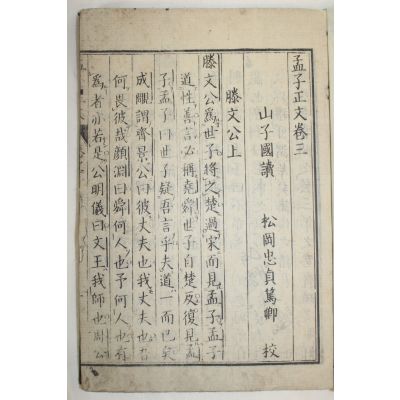 孟子正文卷三
山子國讀 松岡忠貞篤卿 校
滕文公上
滕文公爲世子將之楚過宋而見孟子孟子
道性善言必稱堯舜世子自楚反復見孟
子孟子曰世子疑吾言乎夫道一而已矣
成覸謂齊景公曰彼丈夫也我丈夫也吾
何畏彼哉顏淵曰舜何人也予何人也有
爲者亦若是公明儀曰文王我師也周公